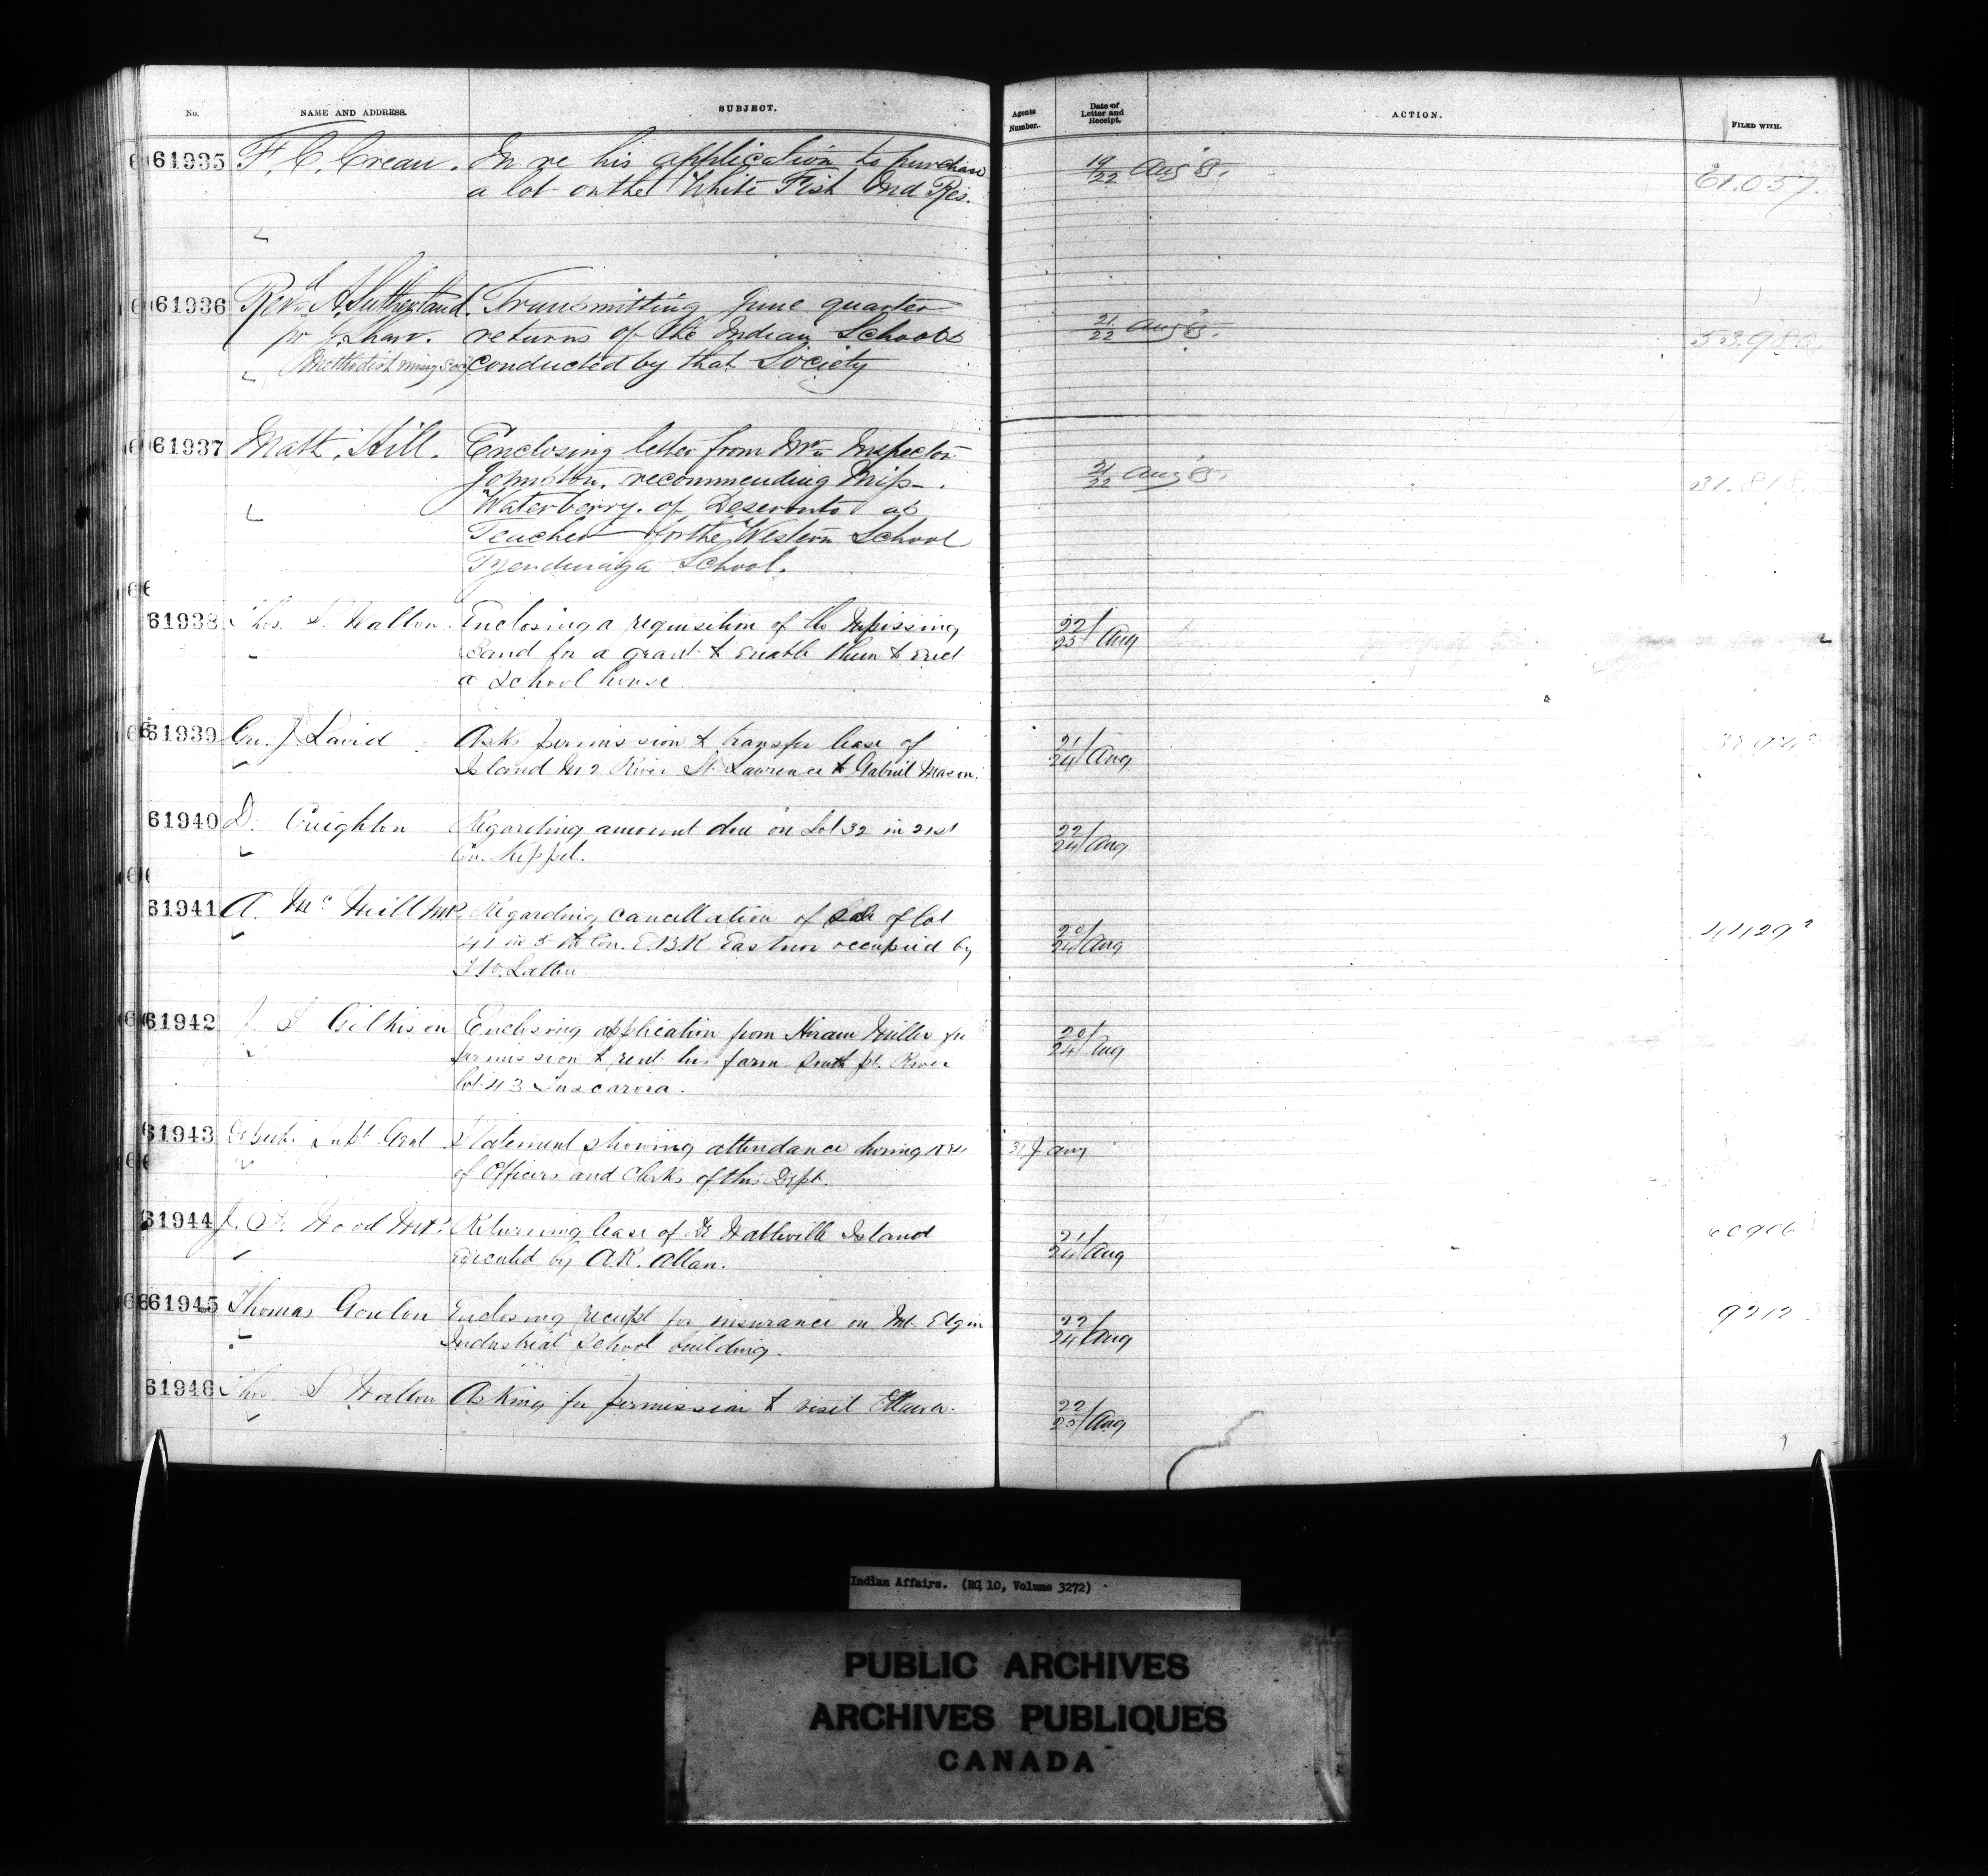 No. NAME AND ADDRESS. SUBJECT. Agents Number. Date of Letter and Receipt. ACTION. FILED WITH.
61935 F. C. Crean. In re his application to purchase 19/22 Aug 85. 61.057.
a lot on the White Fish Ind Res.
61936 Revd. A. Sutherland. Transmitting June quarter 21/22 Aug 85. 53.980.
pr J. Shaw. returns of the Indian Schools
Methodist Missy Socy conducted by that Society
61937 Matt. Hill. Enclosing letter from Mr. Inspector 21/22 Aug 85. 31.818.
Johnston. recommending Miss
Waterberry. of Deseronto as
Teacher for the Western School
Tyendinaga School.
61938 Thos. S. Walton. Enclosing a requisition of the Nipissing 22/25 Aug
Band for a grant to enable them to erect
a School house
61939 Geo. J. Laird Asks permission to transfer lease of 21/24 Aug
Island No 2 River St. Lawrence to Gabriel Mason.
61940 D. Creighton Regarding amount due on Lot 32 in 21st 22/24 Aug
Con. Keppel.
61941 A. McNeill M.P. Regarding cancellation of sale of lot 20/24 Aug 44292
41 in 5th Con. E.B.R. Eastnor occupied by
61942 J. T. Gilkison Enclosing application from Hiram Miller for 20/24 Aug
permission to rent his farm South pt. River
lot 43 Tuscarora.
61943 Supt. Genl Statement showing attendance during
of Officers and Clerks of this Dept.
61944 J. F. Wood M.P. Returning lease of Halliville Island 21/24 Aug
executed by A.R. Allan.
61945 Thomas Gordon Enclosing receipt for insurance on Mt. Elgin 22/24 Aug 9212
Industrial School building.
61946 Thos S Walton Asking for permission to visit Ottawa. 22/25 Aug
Indian Affairs. (RG 10, Volume 3272)
PUBLIC ARCHIVES
ARCHIVES PUBLIQUES
CANADA